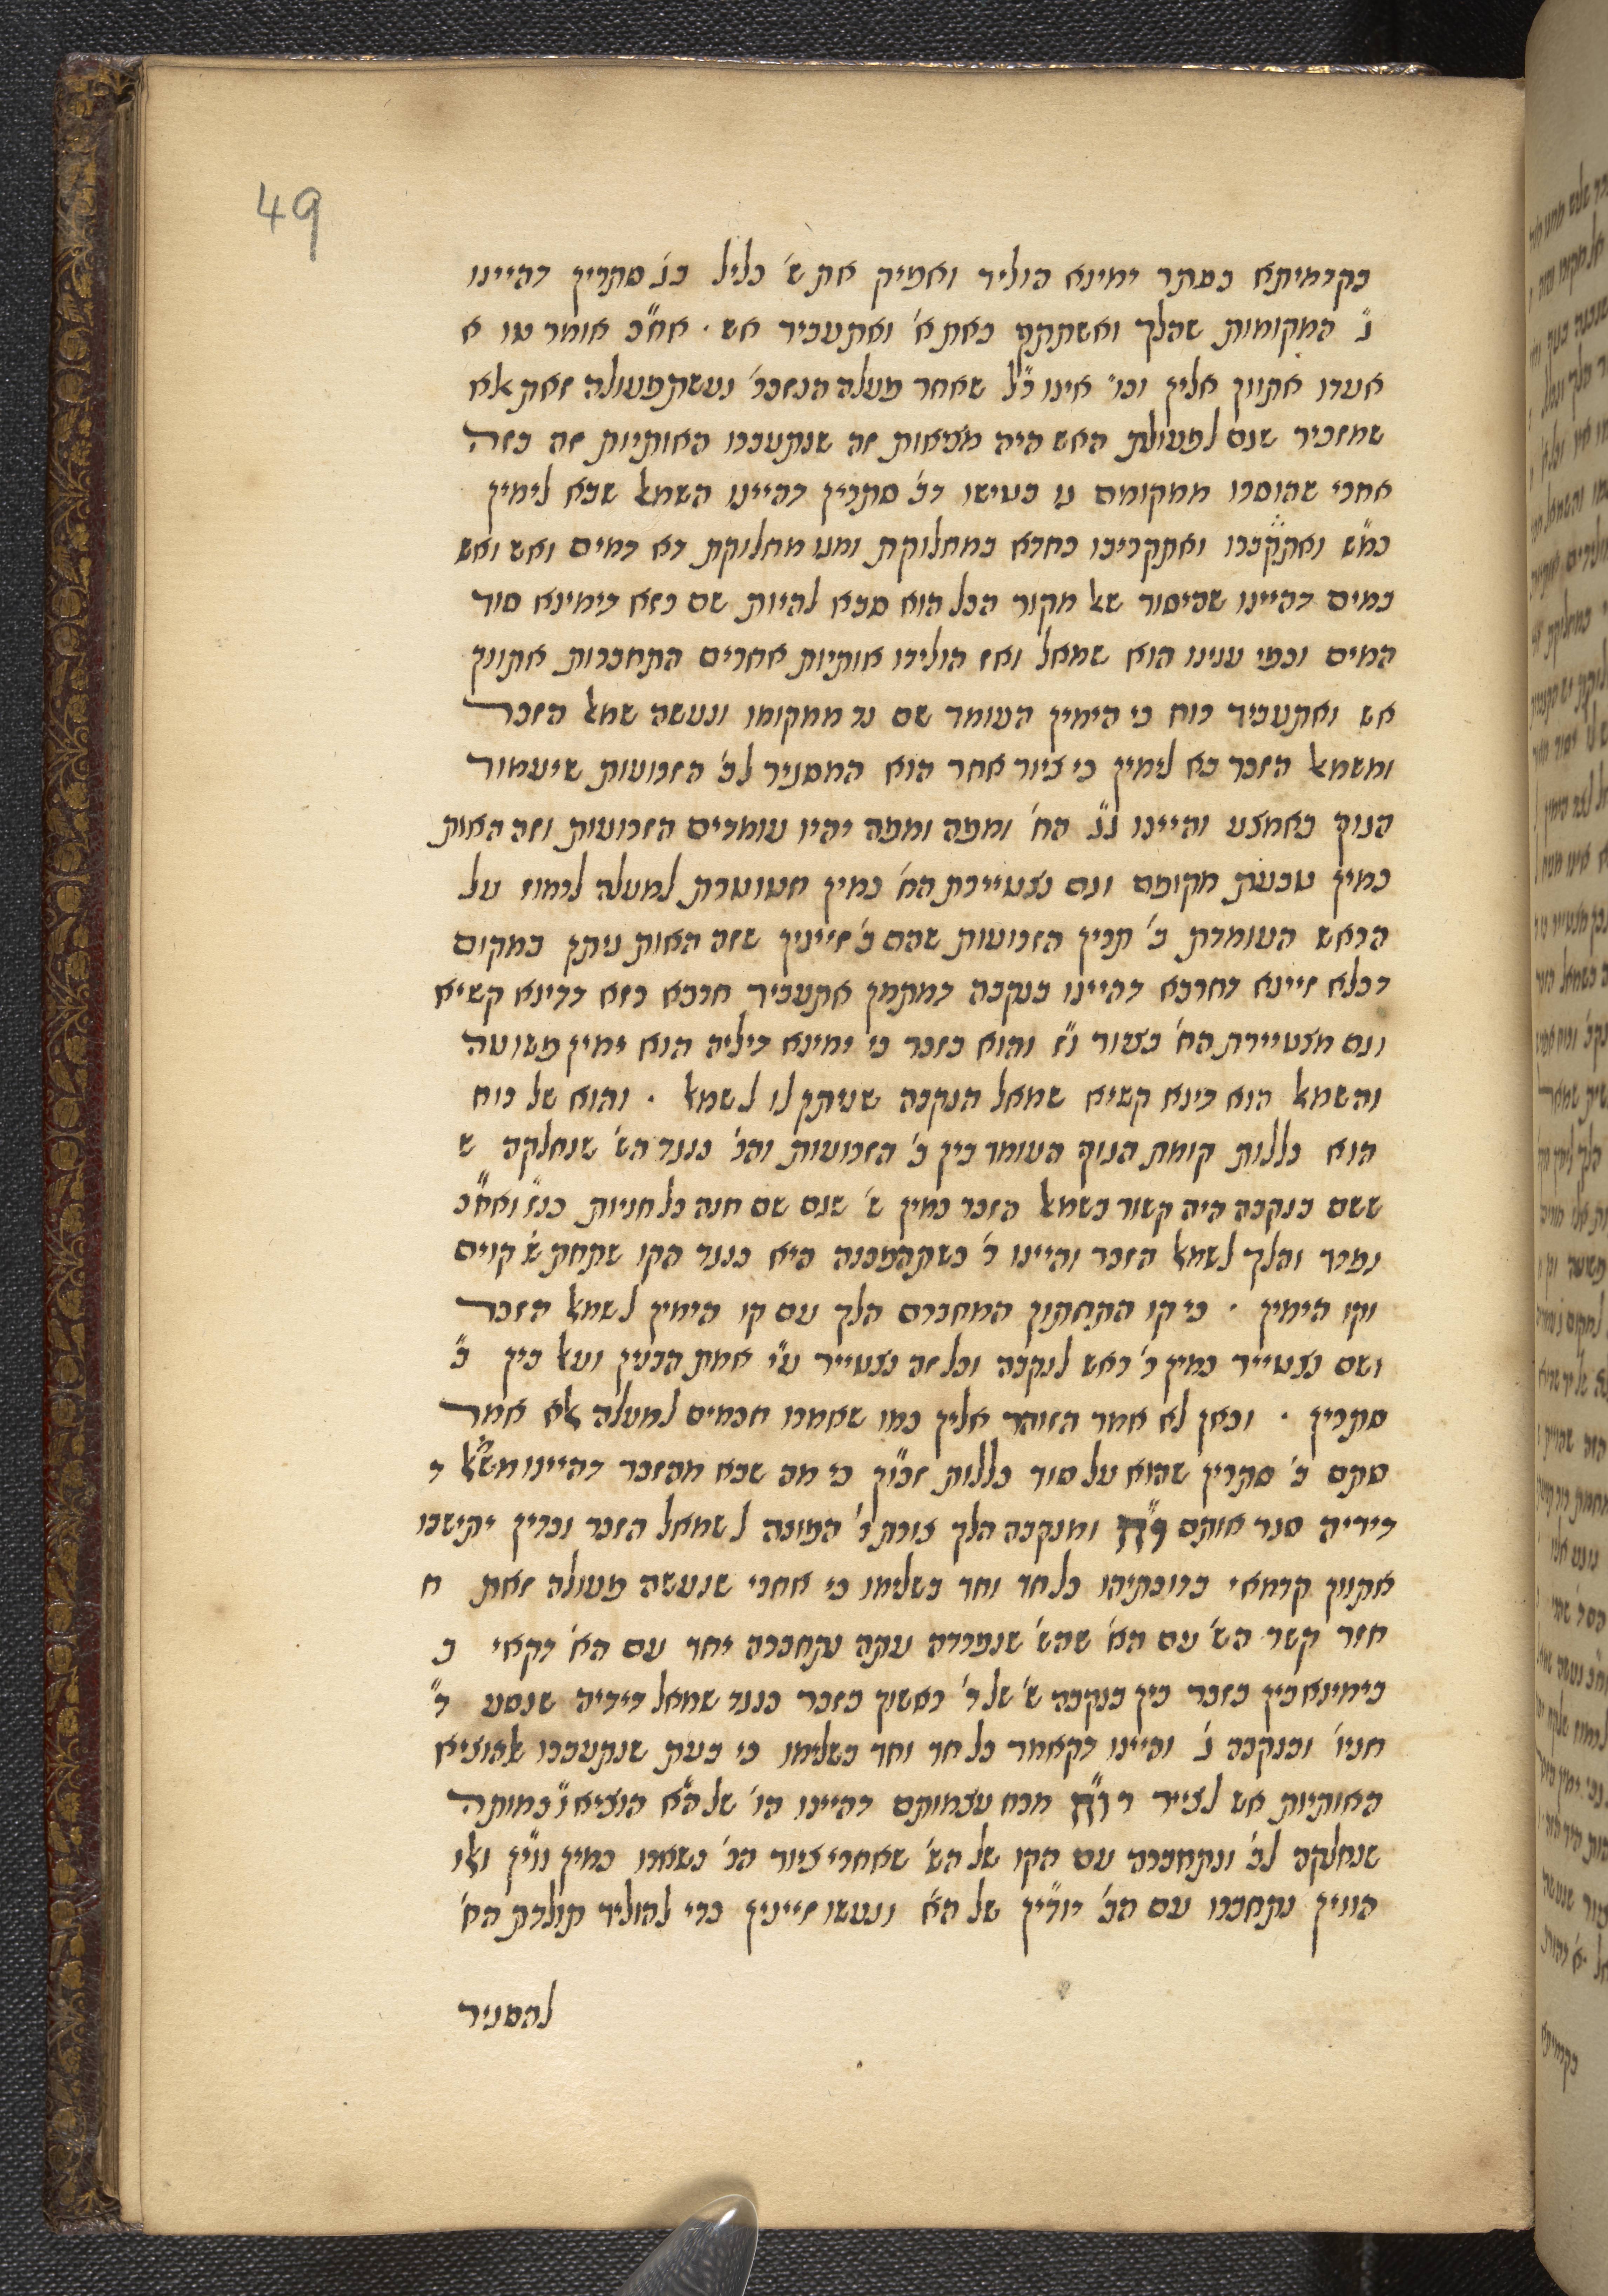 49
בקדמיתא בסתר ימינא הוליד ואפיק את ש' כליל בג' סתרין דהיינו
ג' המקומות שהלך ואשתתף באת א' ואתעביד אש . אח"כ אומר עו א
אעדו אתוון אלין וכו' אינו ר"ל שאחר פעלה הנזכר' נעשת פעולה זאת אלא
שמזכיר שגם לפעולת האש היה מציאות זה שנתעברו האותיות זה בזה
אחרי שהוסרו ממקומם גו בטישו דב' סתרין דהיינו השמאל שבא לימין
כמ"ש ואתקברו ואתקריבו כחדא במחלוקת ומגו מחלוקת דא דמים ואש ואש
במים דהיינו שהיסוד של מקור הכל הוא סבא להיות שם רזא דימינא סוד
המים וכפי ענינו הוא שמאל ואז הולידו אותיות אחרים התחברות אתוון
אש ואתעביד רוח כי הימין העומד שם גד ממקומו ונעשה שמאל הזכר
ומשמאל הזכר בא לימין כי ציור אחר הוא המסגיר לב' הזרועות שיעמוד
הגוף באמצע והיינו גג הח' ומפה ומפה יהיו עומדים הזרועות וזה האות
כמין טבעת מקומם וגם נצטיירת הח' כמין חטוטרת למעלה לרמוז על
הראש העומדת ב' תרין הזרועות שהם ב' זייינין שזה האות ניתן במקום
דכלא זיינא דחרבא דהיינו בנקבה דמתמן אתעביד חרבא רזא דדינא קשיא
וגם מצטיירת הח' בציור ו"ז והוא בזכר כי ימינא דיליה הוא ימין פשוטה
והשמאל הוא דינא קשיא שמאל הנקבה שניתן לו לשמאל . והוא של רוח
הוא כללות קומת הגוף העומד בין ב' הזרועות והר' כנגד הש' שנחלקה ש
ששם בנקבה היה קשור בשמאל הזכר כמין ש' שגם שם חנה כל חניות כנ"ז ואח"כ
נפרד והלך לשמאל הזכר והיינו ר' כשתהפכנה היא כנגד הקו שתחת ש' קוים
וקו הימין . כי קו התחתון המחברם הלך עם קו הימין לשמאל הזכר
ושם נצטייר כמין ר' ראש לנקבה וכל זה נצטייר ע"י אמת הבנין ועל בין ב'
סתרין . וכאן לא אמר הזוהר אלין כמו שאמרו חכמים למעלה אלא אמר
סתם ב' סתרין שהוא על סוד כללות זו"ן כי מה שבא מהזכר דהיינו משמאל ד
דידיה סגר אותם רוח ומנקבה הלך צורת ר' הפונה לשמאל הזכר ובדין יתישבו
אתוון קדמאי בדוכתיהו כל חד וחד בשלימו כי אחרי שנעשה פעולה זאת ח
חזר קשר הש' עם הא' שהש' שנפרדה עתה נתחברה יחד עם הא' דקאי ב
בימינא בין בזכר בין בנקבה ש' של ר' ראשון בזכר כנגד שמאל דידיה שנסע ד'
חניו' ובנקבה ג' והיינו דקאמר כל חד וחד בשלימו כי בעת שנתעברו להוציא
האותיות אש לצייר רוח מכח עצמותם דהיינו הו' של הא' הוציא ו' כמותה
שנחלקה לב' ונתחברה עם הקו של הש' שאחרי ציור הר' נשארו כמין ווי"ן ואלו
הווין נתחברו עם הב' יודי"ן של הא' ונעשו זיינין כדי להוליד תולדת הח'
להסגיר